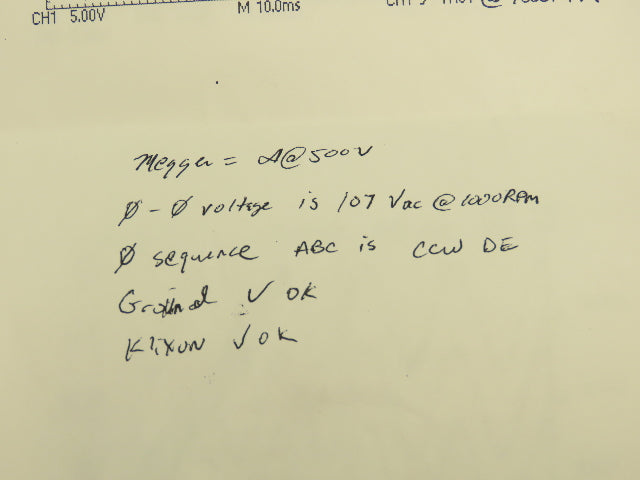 CH1 5.00V M 10.0ms
Megger = ∞ @ 500V
Ø - Ø voltage is 107 Vac @ 1000RPM
Ø sequence ABC is CCW DE
Ground √ OK
Klixon √ OK